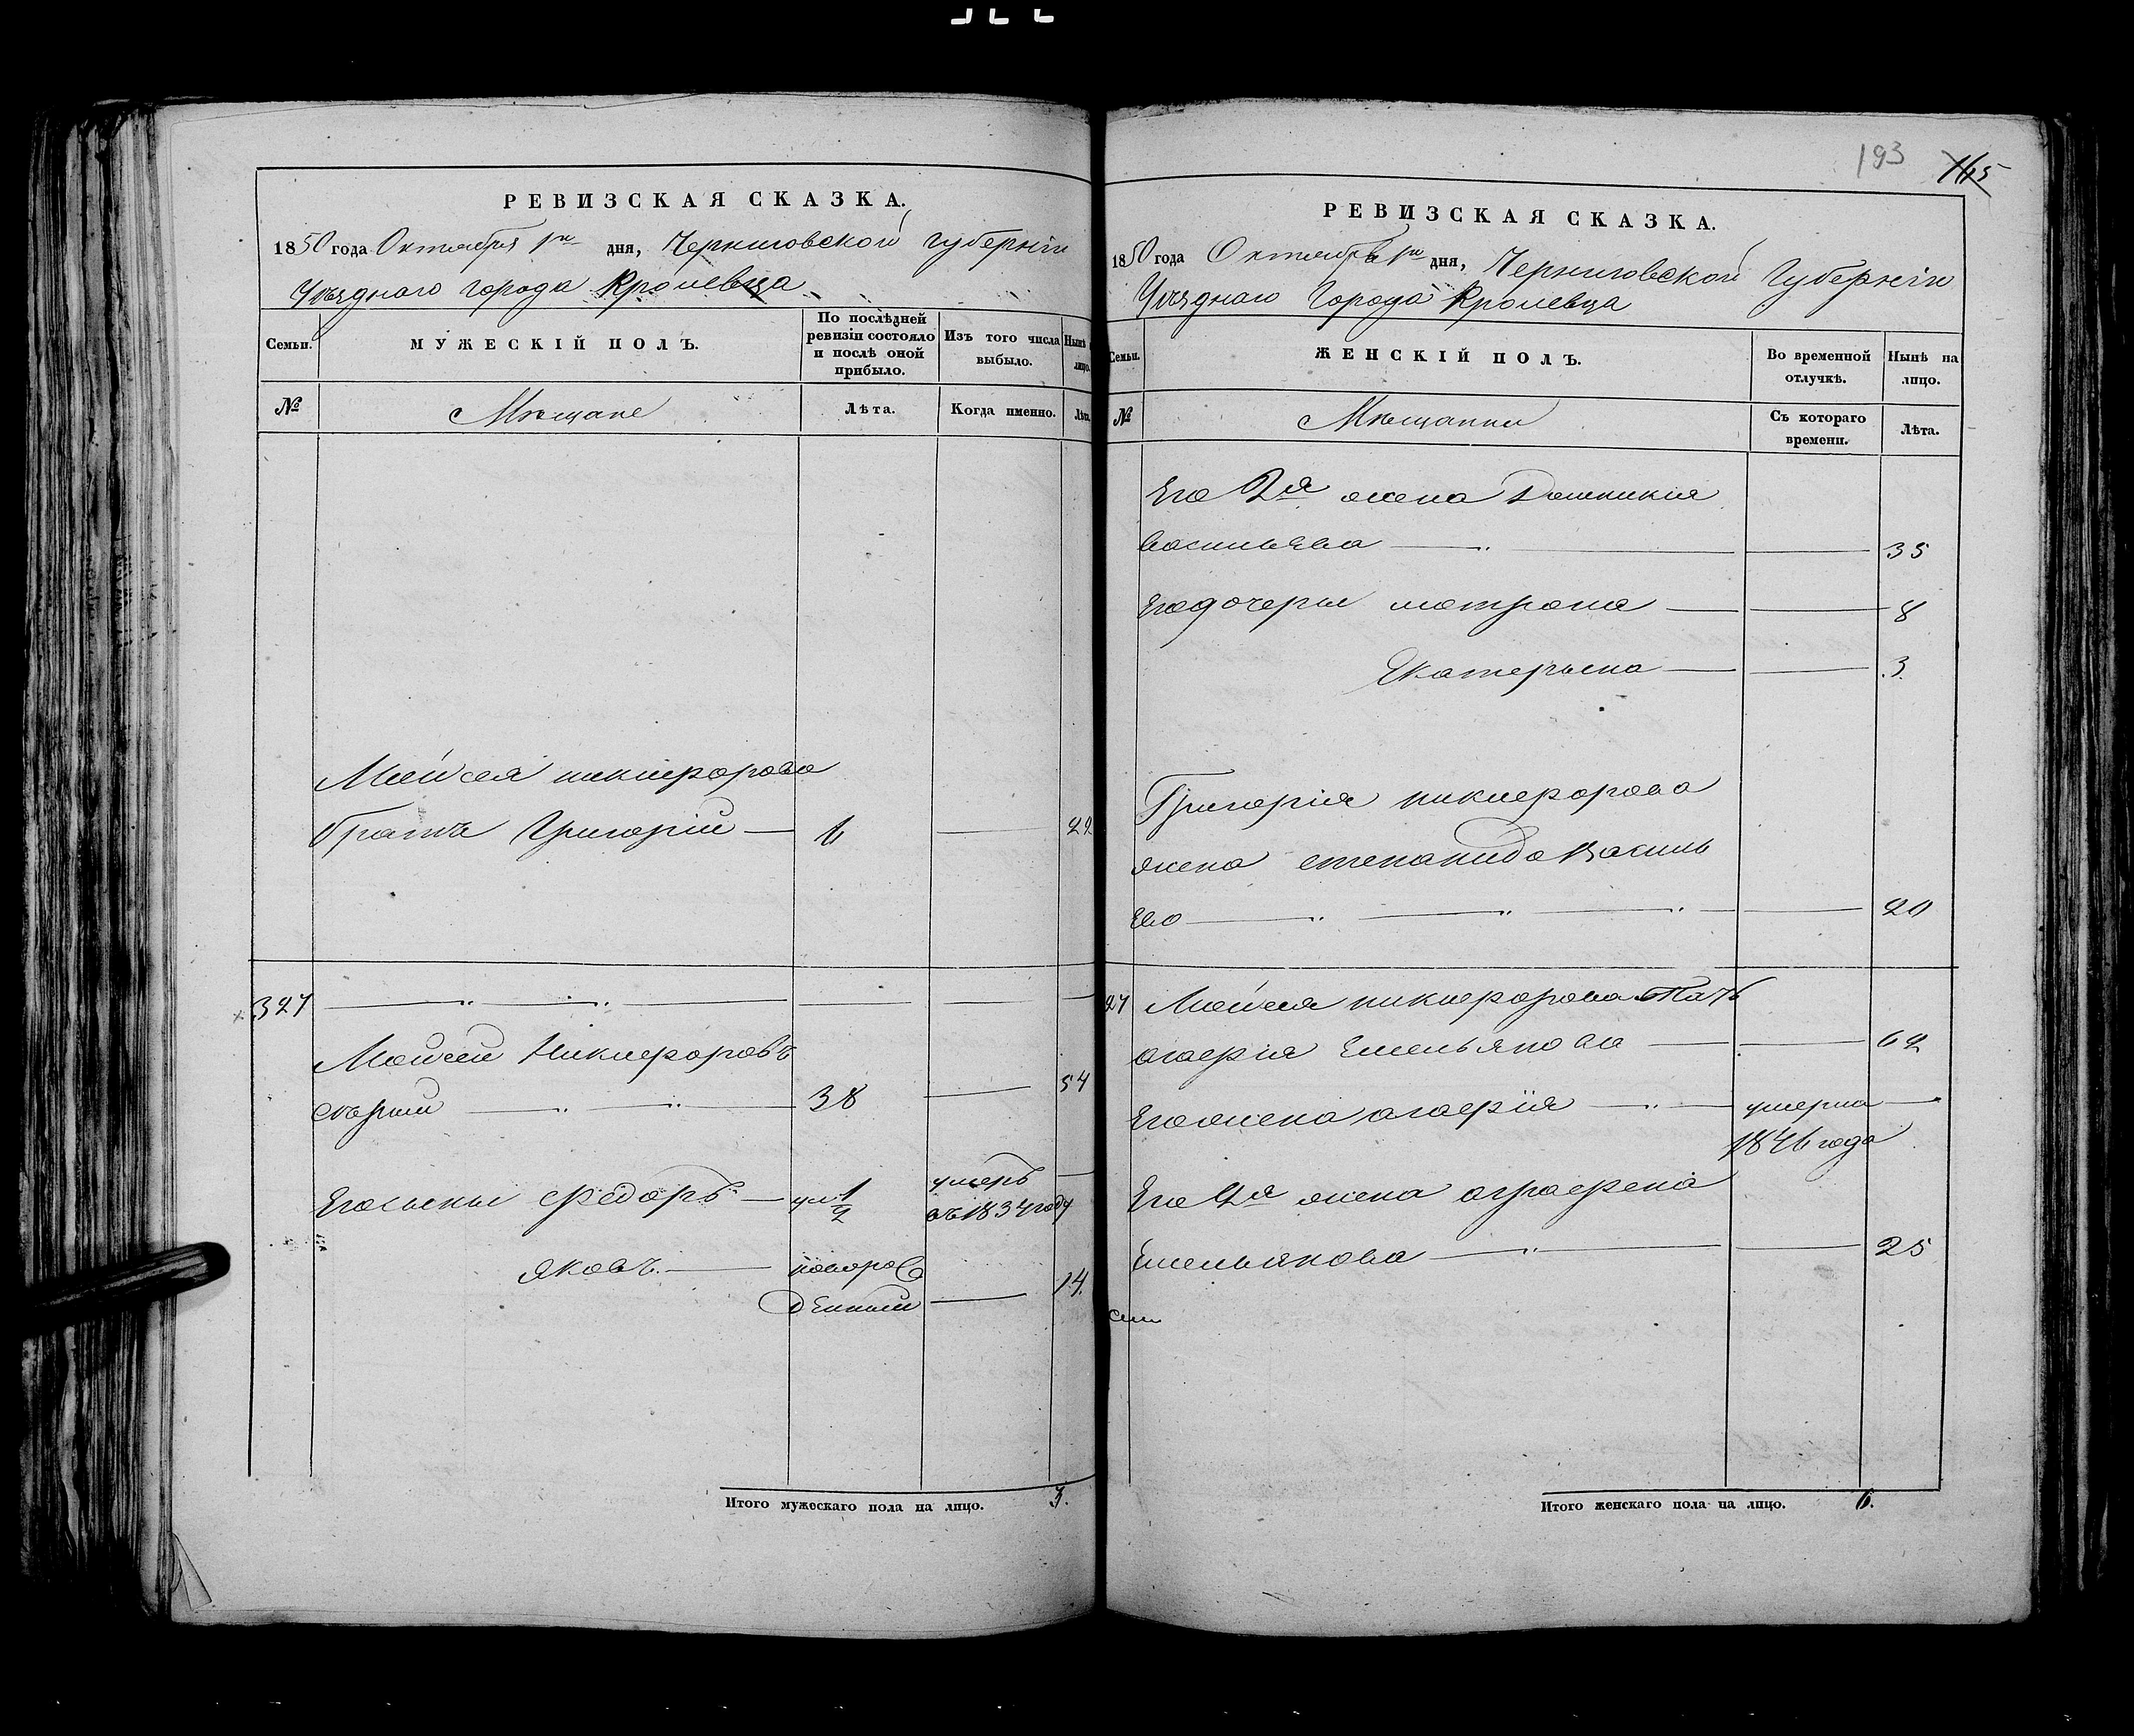 РЕВИЗСКАЯ СКАЗКА.
1850 года Октября 1го дня, Черниговской губерніи
Уѣзднаго города Кролевца
Семьи.
МУЖЕСКІЙ ПОЛЪ.
По послѣдней ревизіи состояло и послѣ оной прибыло.
Изъ того числа выбыло.
Нынѣ
лицо.
№
Мѣщане
Лѣта.
Когда именно.
Лѣта.
Мойсея никифорова
братъ Григорій — 6 — 22
327
Мойсей Никифоровъ
38 — 54
Его сыны Федоръ — ум 1/2 умеръ
въ 1834 году
яковъ — новоро
денный — 14.
Итого мужескаго пола на лицо. 3.
193
165
РЕВИЗСКАЯ СКАЗКА.
1850 года Октября 1го дня, Черниговской Губерніи
Уѣзднаго Города Кролевца
Семьи.
ЖЕНСКІЙ ПОЛЪ.
Во временной отлучкѣ.
Нынѣ на лицо.
№
Мѣщанки
Съ котораго времени.
Лѣта.
Его 2я жена Домникия
васильева — 35
Его дочеры мотрона — 8
Екатерына — 3
Григорія никифорова
жена степанида василь
ева — 20
27 Мойсея никифорова мать
агафія Емельянова — 62
Его жена агафія — умерла —
1846 года
Его 2я жена аграфена
Емельянова — 25
Итого женскаго пола на лицо. 6.